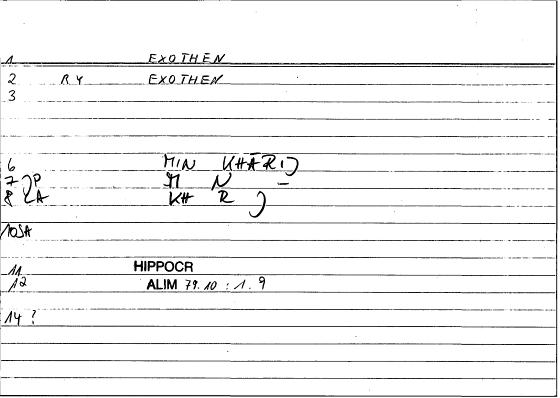 1 EXOTHEN
2 RY EXOTHEN
3
6 MIN KHĀRIJ
7 P M N –
8 LA KH R J
10SA
11 HIPPOCR
12 ALIM 79.10 : 1.9
14 ?